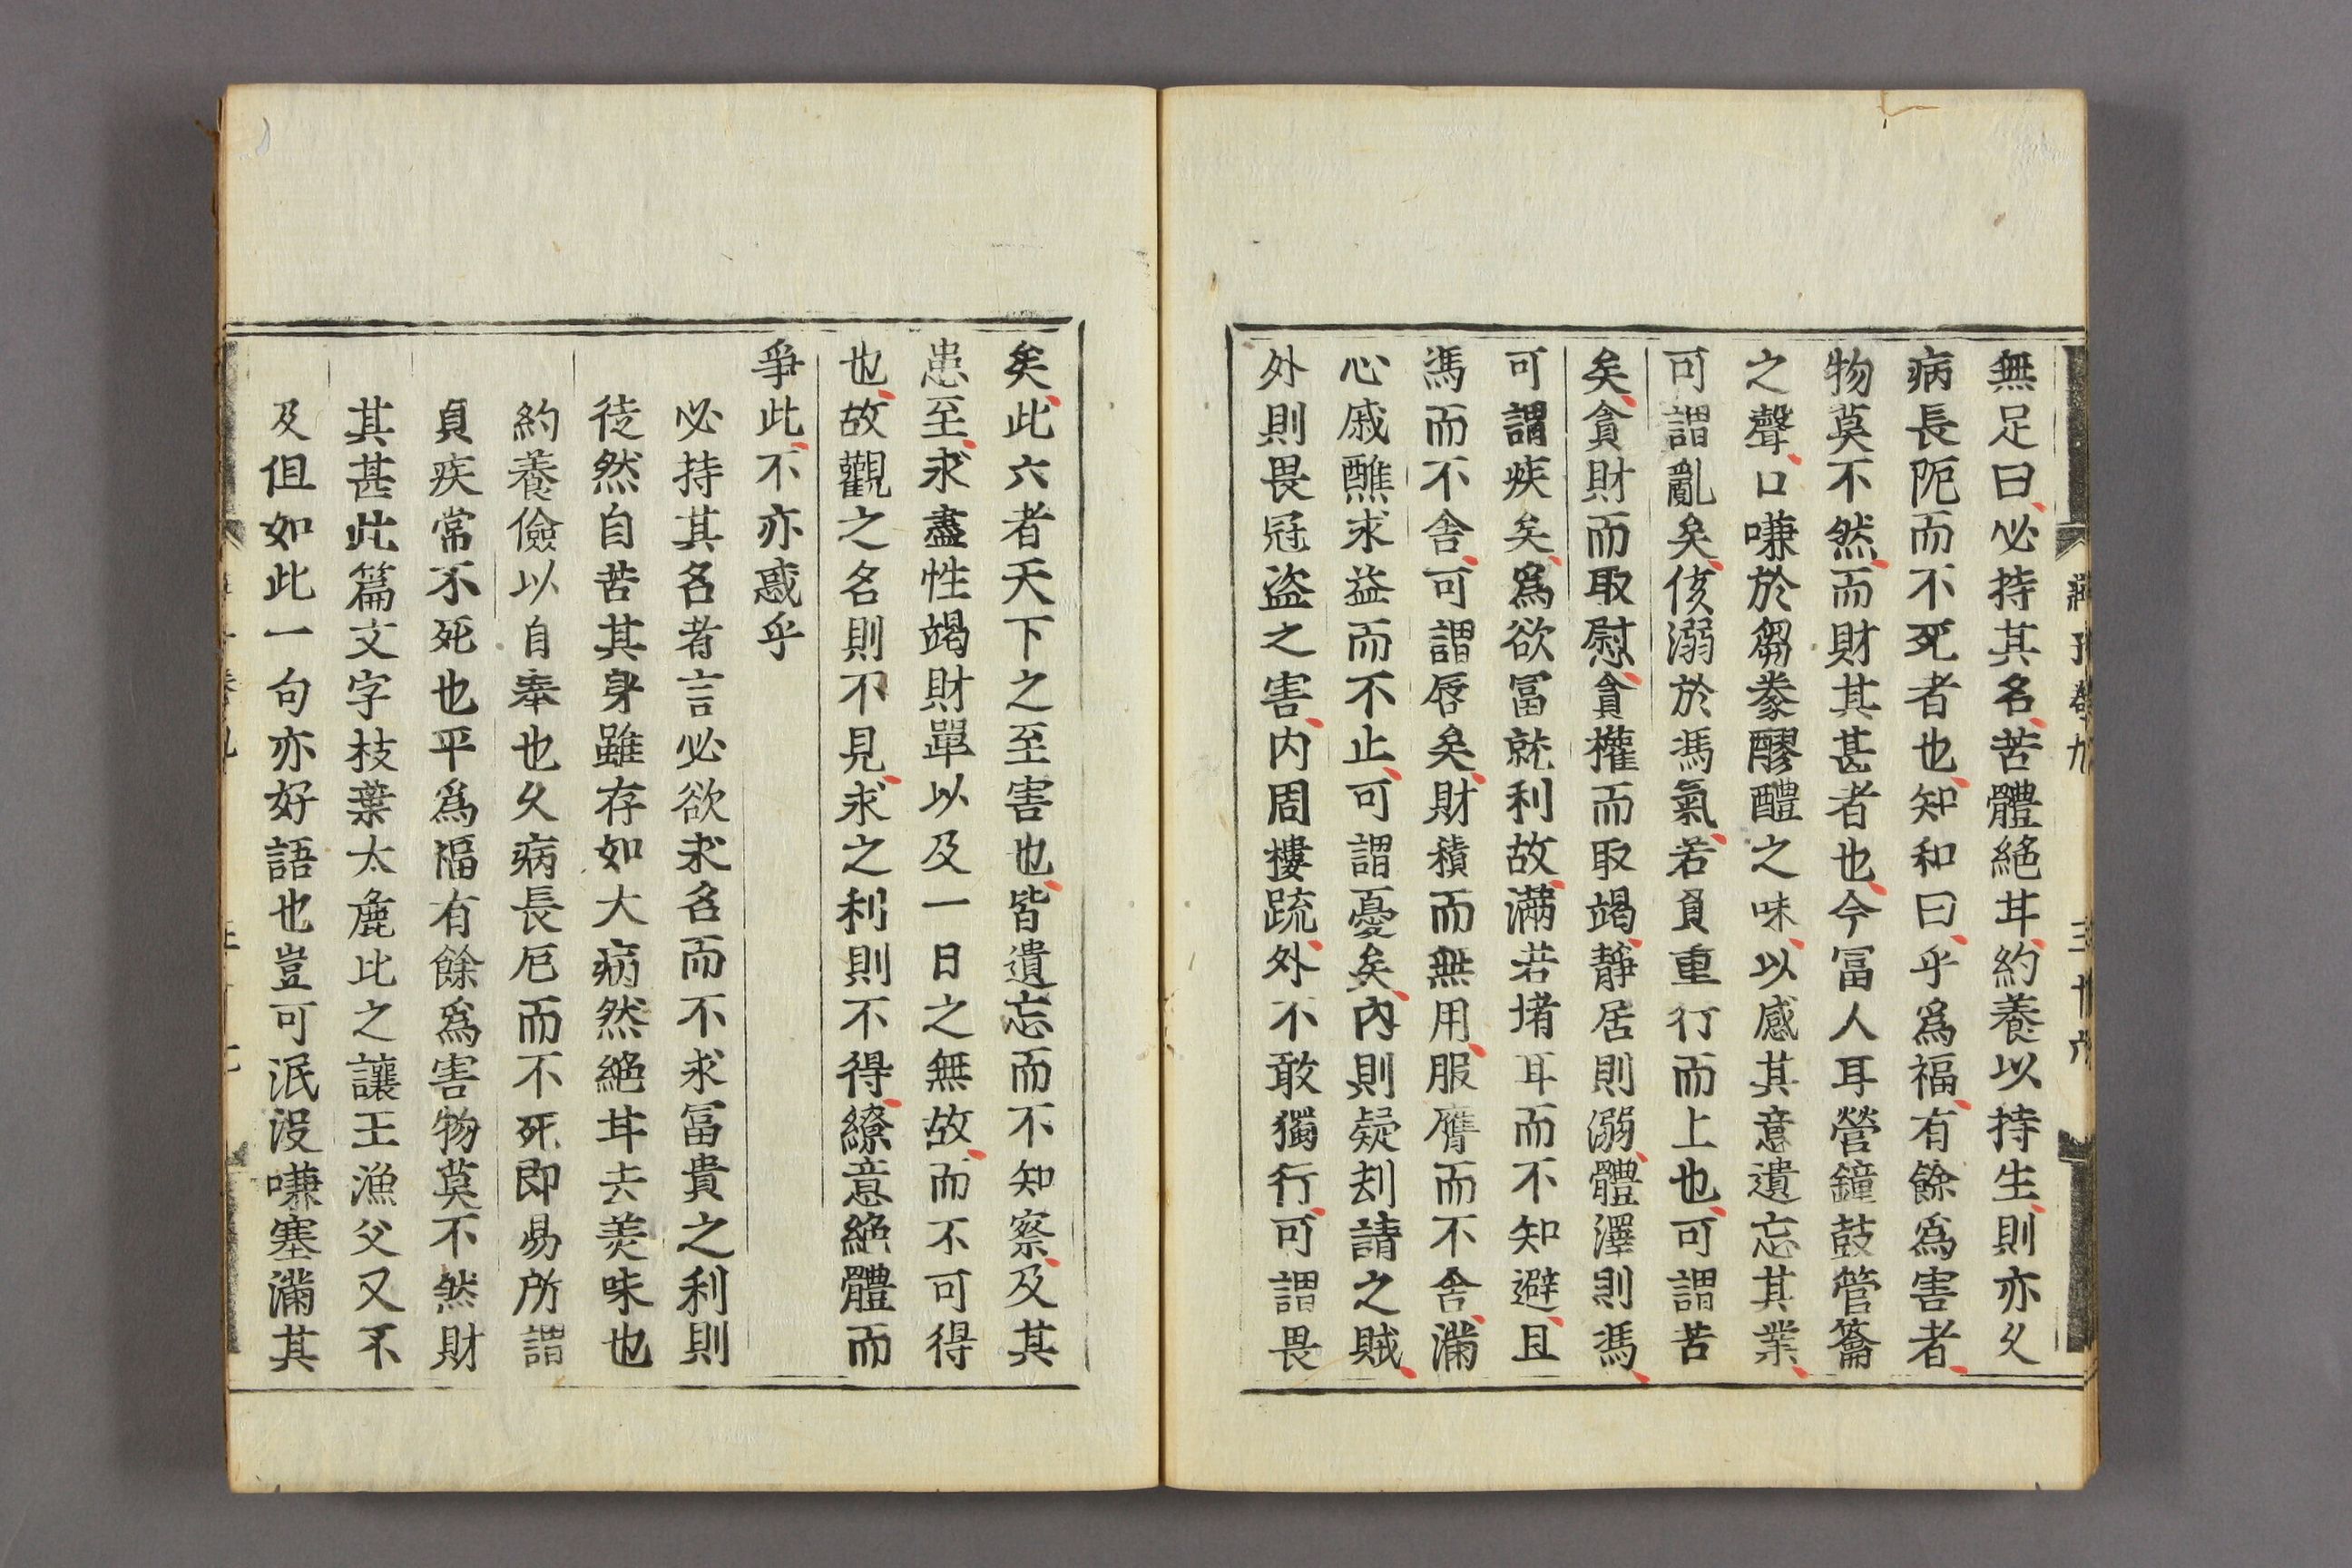 無足曰必持其名苦體絕甘約養以持生則亦久
病長阨而不死者也知和曰乎爲福有餘爲害者
物莫不然而財其甚者也今冨人耳營鐘鼓管籥
之聲口嗛於芻豢醪醴之味以感其意遺忘其業
可謂亂矣侅溺於馮氣若負重行而上也可謂苦
矣貪財而取慰貪權而取竭靜居則溺體澤則馮
可謂疾矣爲欲冨就利故滿若堵耳而不知避且
馮而不舎可謂辱矣財積而無用服膺而不舎滿
心戚醮求益而不止可謂憂矣內則疑刦請之賊
外則畏冦盗之害内周摟疏外不敢獨行可謂畏
矣此六者天下之至害也皆遺忘而不知察及其
患至求盡性竭財單以及一日之無故而不可得
也故觀之名則不見求之利則不得繚意絕體而
爭此不亦惑乎
必持其名者言必欲求名而不求冨貴之利則
徒然自苦其身雖存如大病然絕甘去美味也
約養儉以自奉也久病長厄而不死即易所謂
貞疾常不死也平爲福有餘爲害物莫不然財
其甚此篇文字枝葉太麁比之讓王漁父又不
及但如此一句亦好語也豈可泯没嗛塞滿其